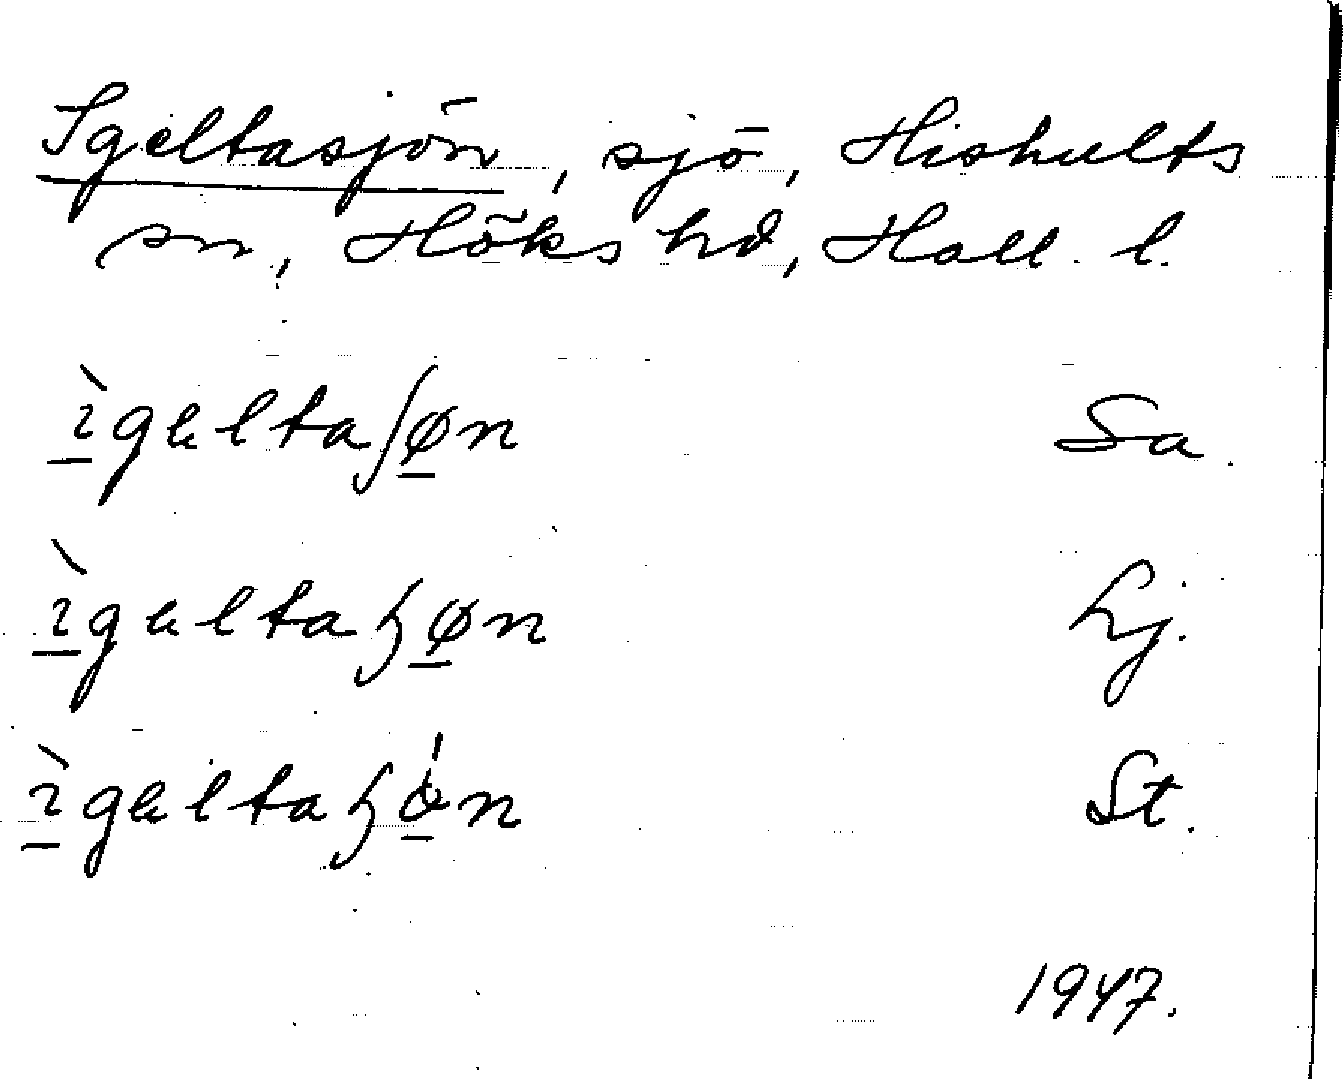 Igeltasjön, sjö, Hishults
sn, Höks hd, Hall. l.
ìgeltaʃøn Sa.
ìgeltaɧøn Lj.
ìgeltaɧǿn St.
1947.